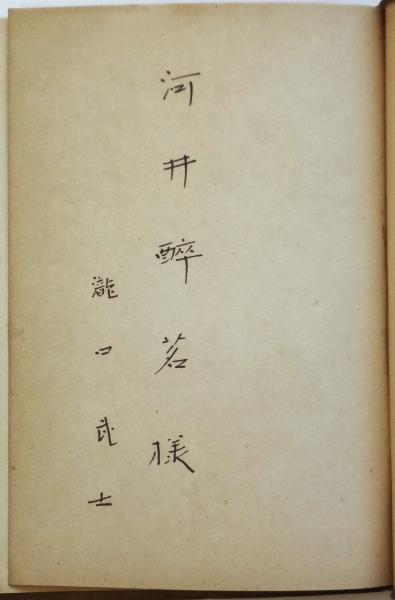 河井醉茗様
瀧口武士